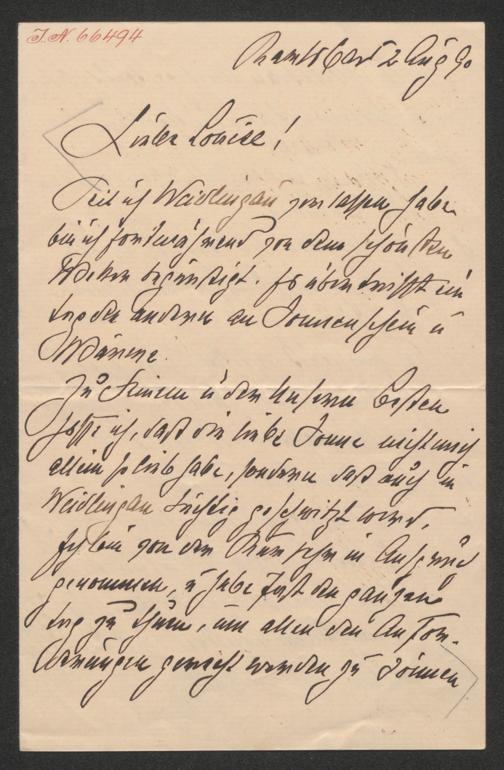 I.N. 66494
2 Aug 90
Liebe Louise!
Seit ich Weidlingau verlassen habe
bin ich fortwährend von dem schönsten
Wetter begünstigt. Es übertrifft ein
Tag den anderen an Sonnenschein u
Wärme.
Zu Deinem u der Unseren Besten
hoffe ich, daß die liebe Sonne nicht mich
allein so lieb habe, sondern daß auch in
Weidlingau tüchtig geschwitzt wird.
Ich bin von den in Anspruch
genommen, u habe fast den ganzen
Tag zu thun, um allen den Anfor-
derungen gerecht werden zu können